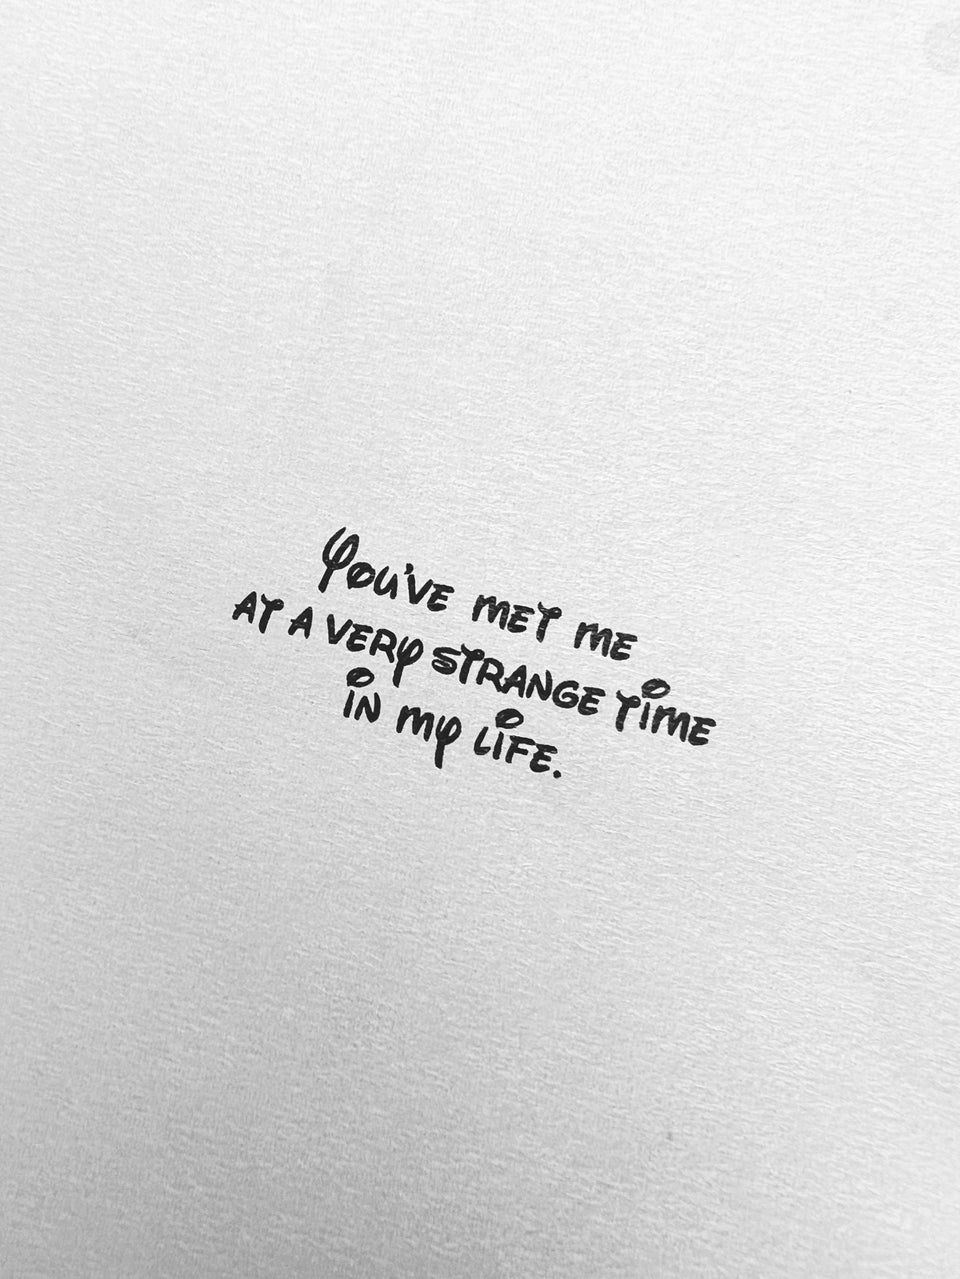 You've met me
at a very strange time
in my life.